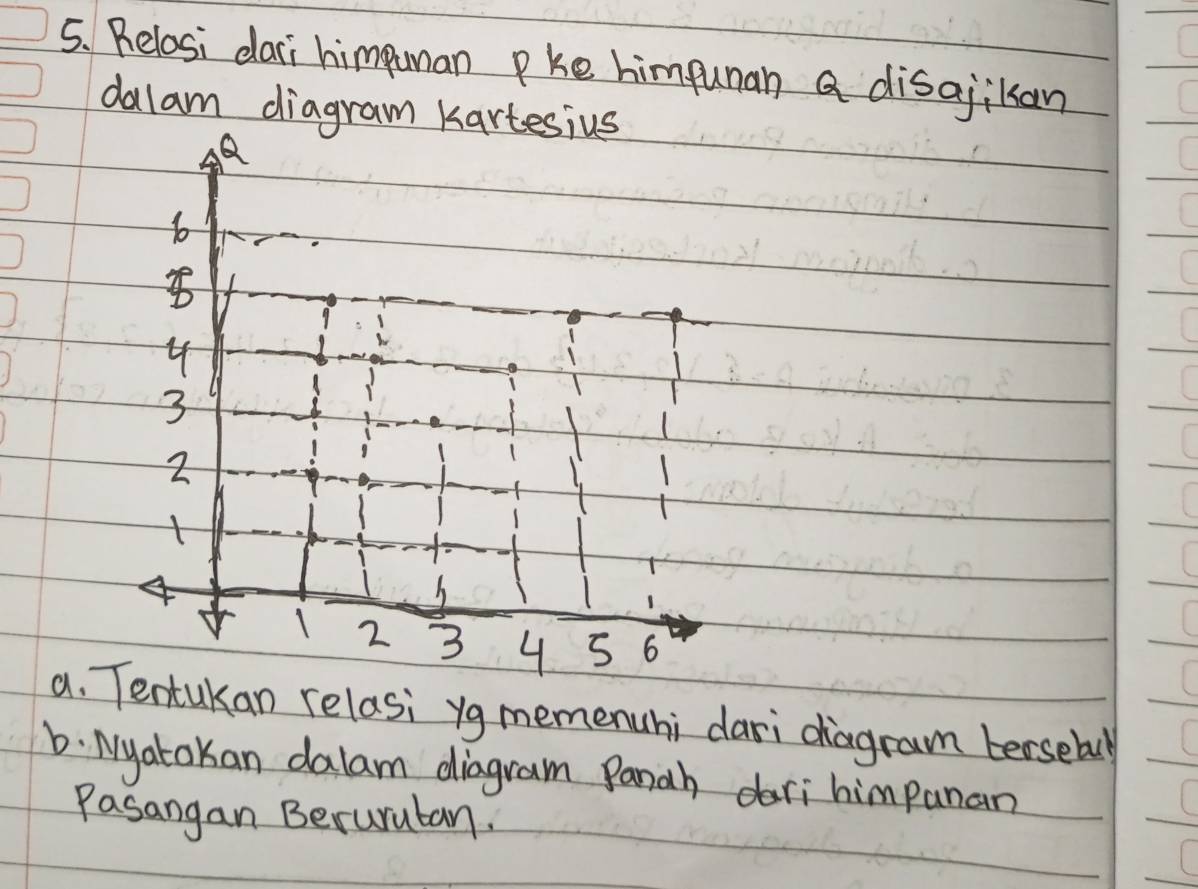 5. Relasi dari himpunan P ke himpunan Q disajikan
dalam diagram kartesius
Q
6
5
4
3
2
1
1 2 3 4 5 6
a. Tentukan relasi yg memenuhi dari diagram tersebut
b. Nyatakan dalam diagram Panah dari himpunan
Pasangan Berurutan.